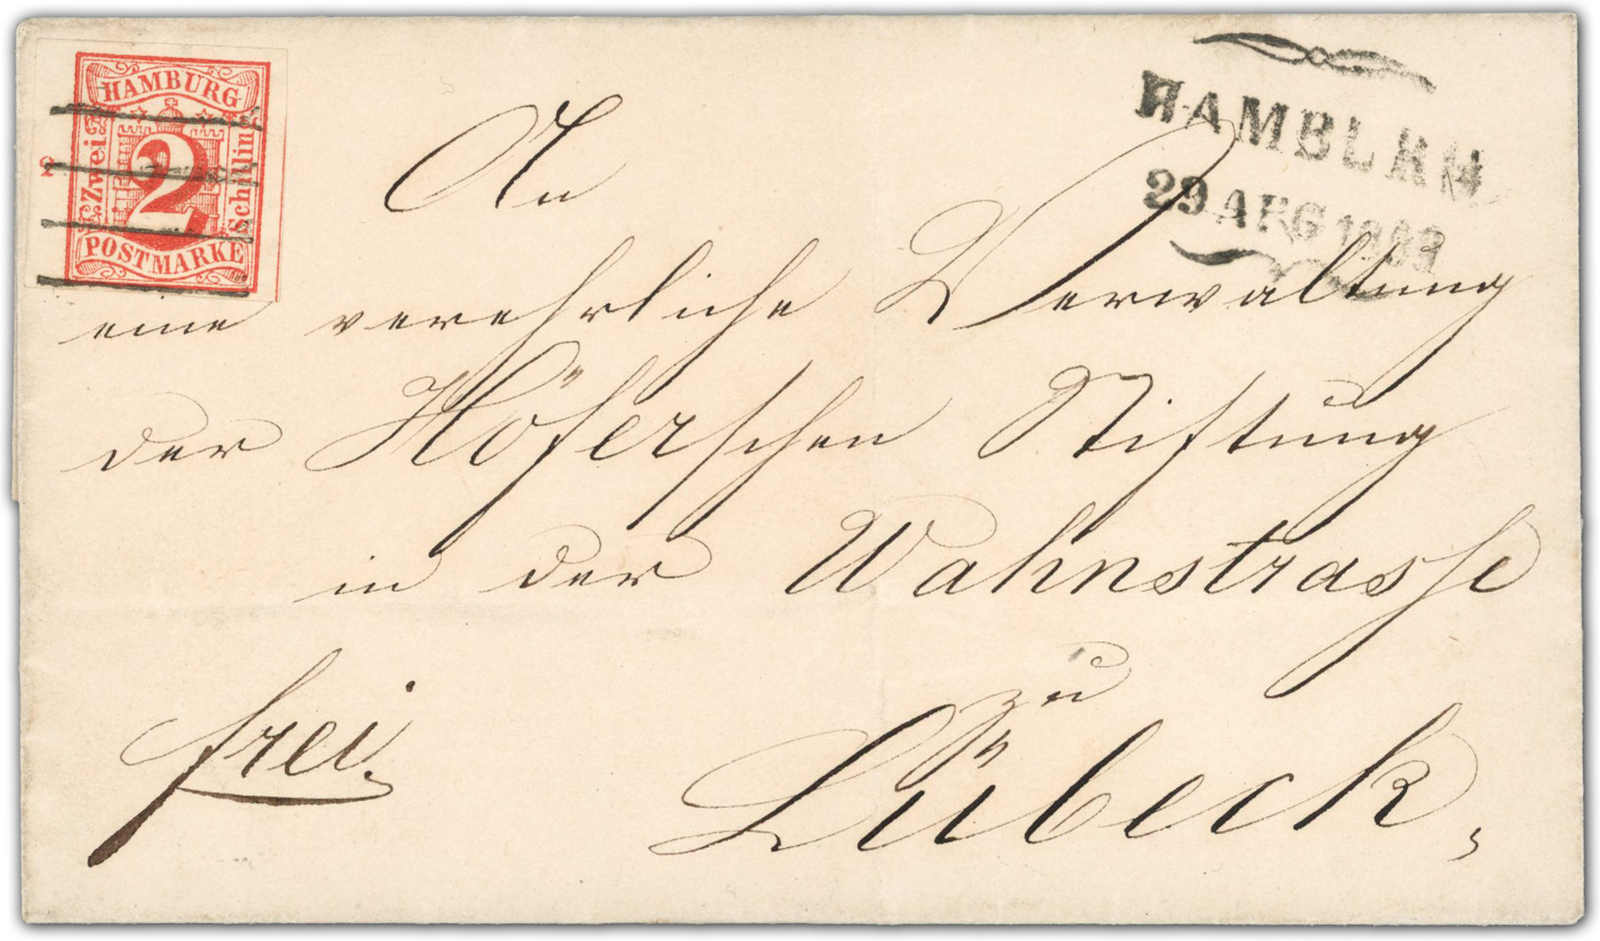 HAMBURG
Zwei
2
Schilling
POSTMARKE
2
HAMBURG
29 AUG
An
eine verehrliche Verwaltung
der Höferschen Stiftung
in der Wahnstrasse
zu
Lübeck,
frei.